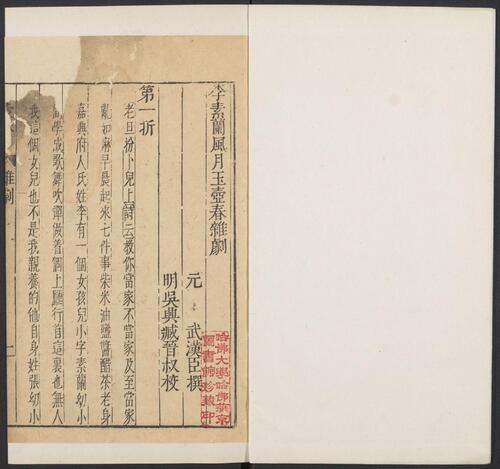 李素蘭風月玉壺春雜劇
元 武漢臣撰
明吳興臧晉叔校
哈佛大學哈佛燕京
圖書館珍藏印
第一折
老旦扮卜兒上詩云教你當家不當家及至當家
亂如麻早晨起來七件事柴米油鹽醬醋茶老身
嘉興府人氏姓李有一個女孩兒小字素蘭幼小
學成歌舞吹彈做着個上廳行首這裏也無人
我這個女兒也不是我親養的他自身姓張幼小
雜劇
一